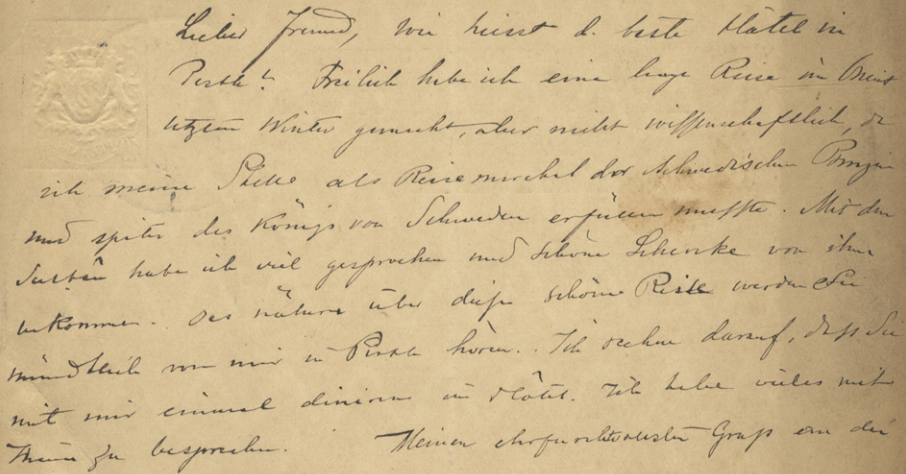 Lieber Freund, wie heisst d. beste Hôtel in
Pesth? Freilich habe ich eine lange Reise im Orient
letzten Winter gemacht, aber nicht wissenschaftlich, da
ich meine Stelle als Reisemarschal der Schwedischen Prinzen
und später des Königs von Schweden erfüllen musste. Mit dem
Sultân habe ich viel gesprochen und schöne Schenke von ihm
bekommen. Das nähere über diese schöne Reise werden Sie
mündtlich von mir in Pesth hören. Ich rechne darauf, dass Sie
mit mir einmal diniren im Hôtel. Ich habe vieles mit
Ihnen zu besprechen. Meinen ehrfurchtvollsten Gruss an die